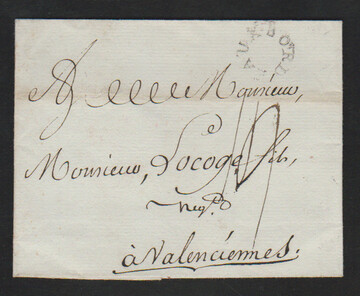 A Monsieur,
Monsieur, Locoge fils,
neg.t
à Valenciennes.